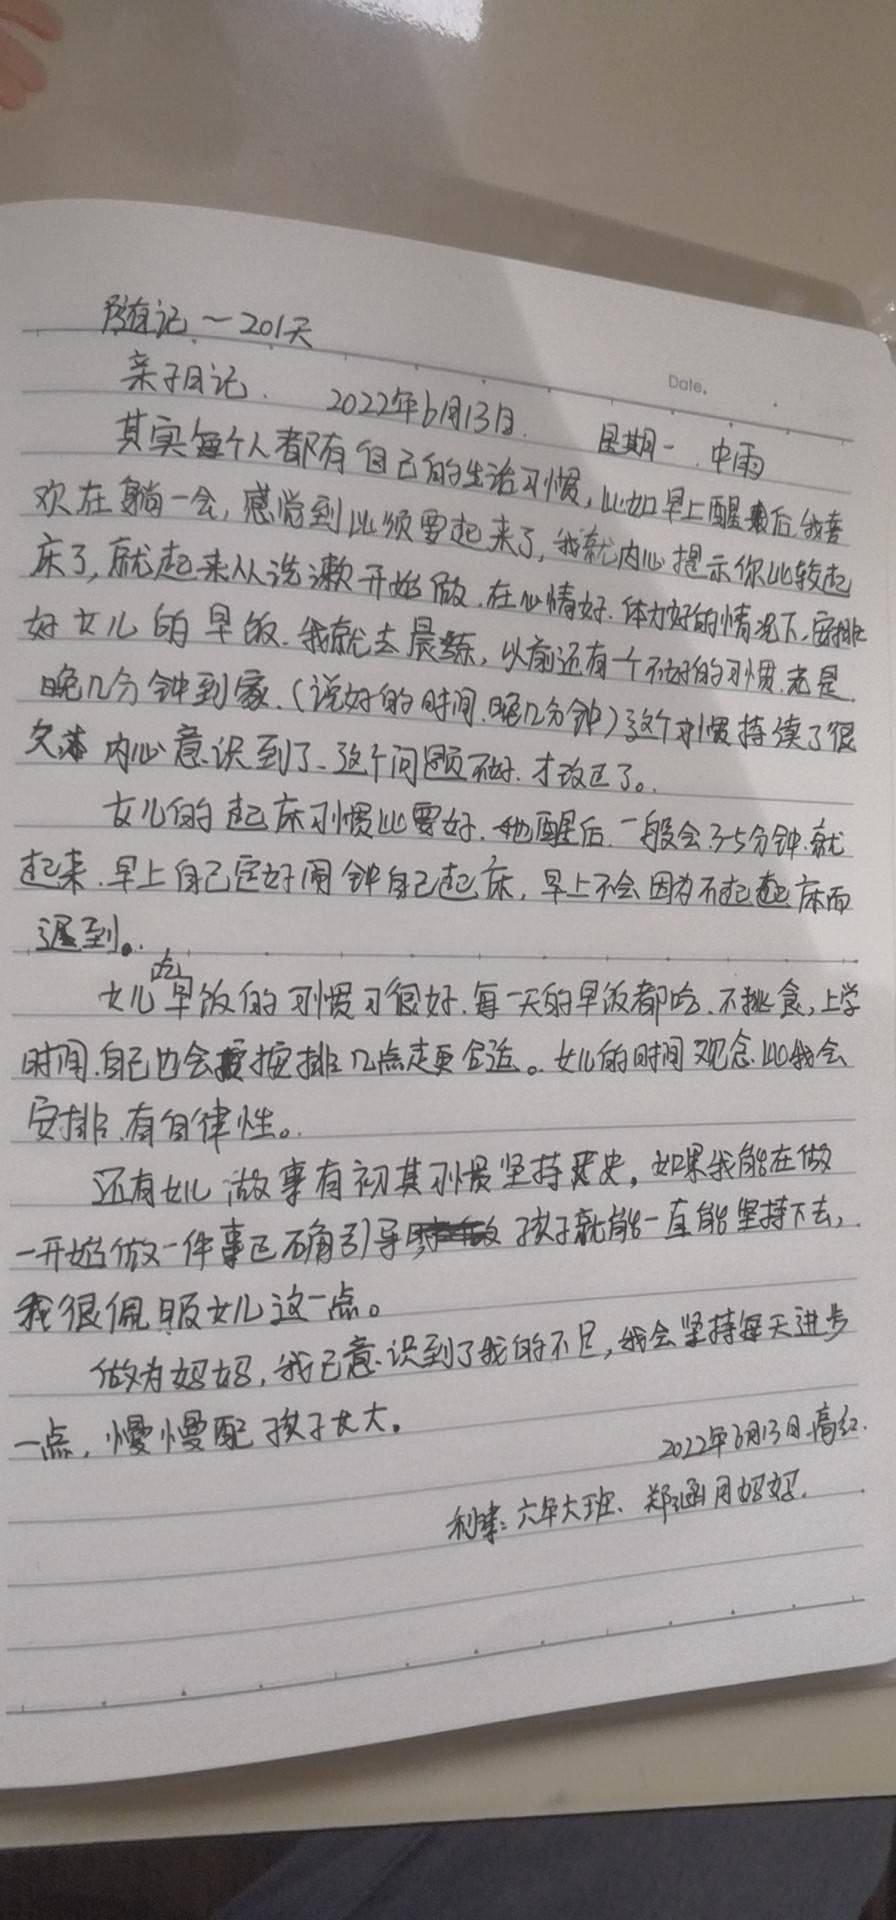 随记～201天
Date.
亲子日记. 2022年6月13日. 星期一. 中雨
其实每个人都有自己的生活习惯，比如早上醒来后,我喜
欢在躺一会，感觉到必须要起来了，我就内心提示你比较起
床了，就起来从洗漱开始做.在心情好.体力好的情况下,安排
好女儿的早饭.我就去晨练，以前还有一个不好的习惯.老是
晚几分钟到家.(说好的时间.晚几分钟)这个习惯持续了很
久 内心意识到了、这个问题不好.才改正了。
女儿的起床习惯比要好.她醒后.一般会3-5分钟.就
起来.早上自己定好闹钟自己起床，早上不会因为不起起床而
迟到。
女儿吃早饭的习惯习很好.每一天的早饭都吃、不挑食，上学
时间.自己也会按排几点走更合适。女儿的时间观念.比我会
安排、有自律性。
还有女儿做事有初其习惯坚持 史，如果我能在做
一开始做一件事正确引导 孩子就能一直能坚持下去，
我很佩服女儿这一点。
做为妈妈，我已意识到了我的不足，我会坚持每天进步
一点，慢慢配孩子长大。
2022年6月13日.高红.
利津:六年大班、郑涵月妈妈.